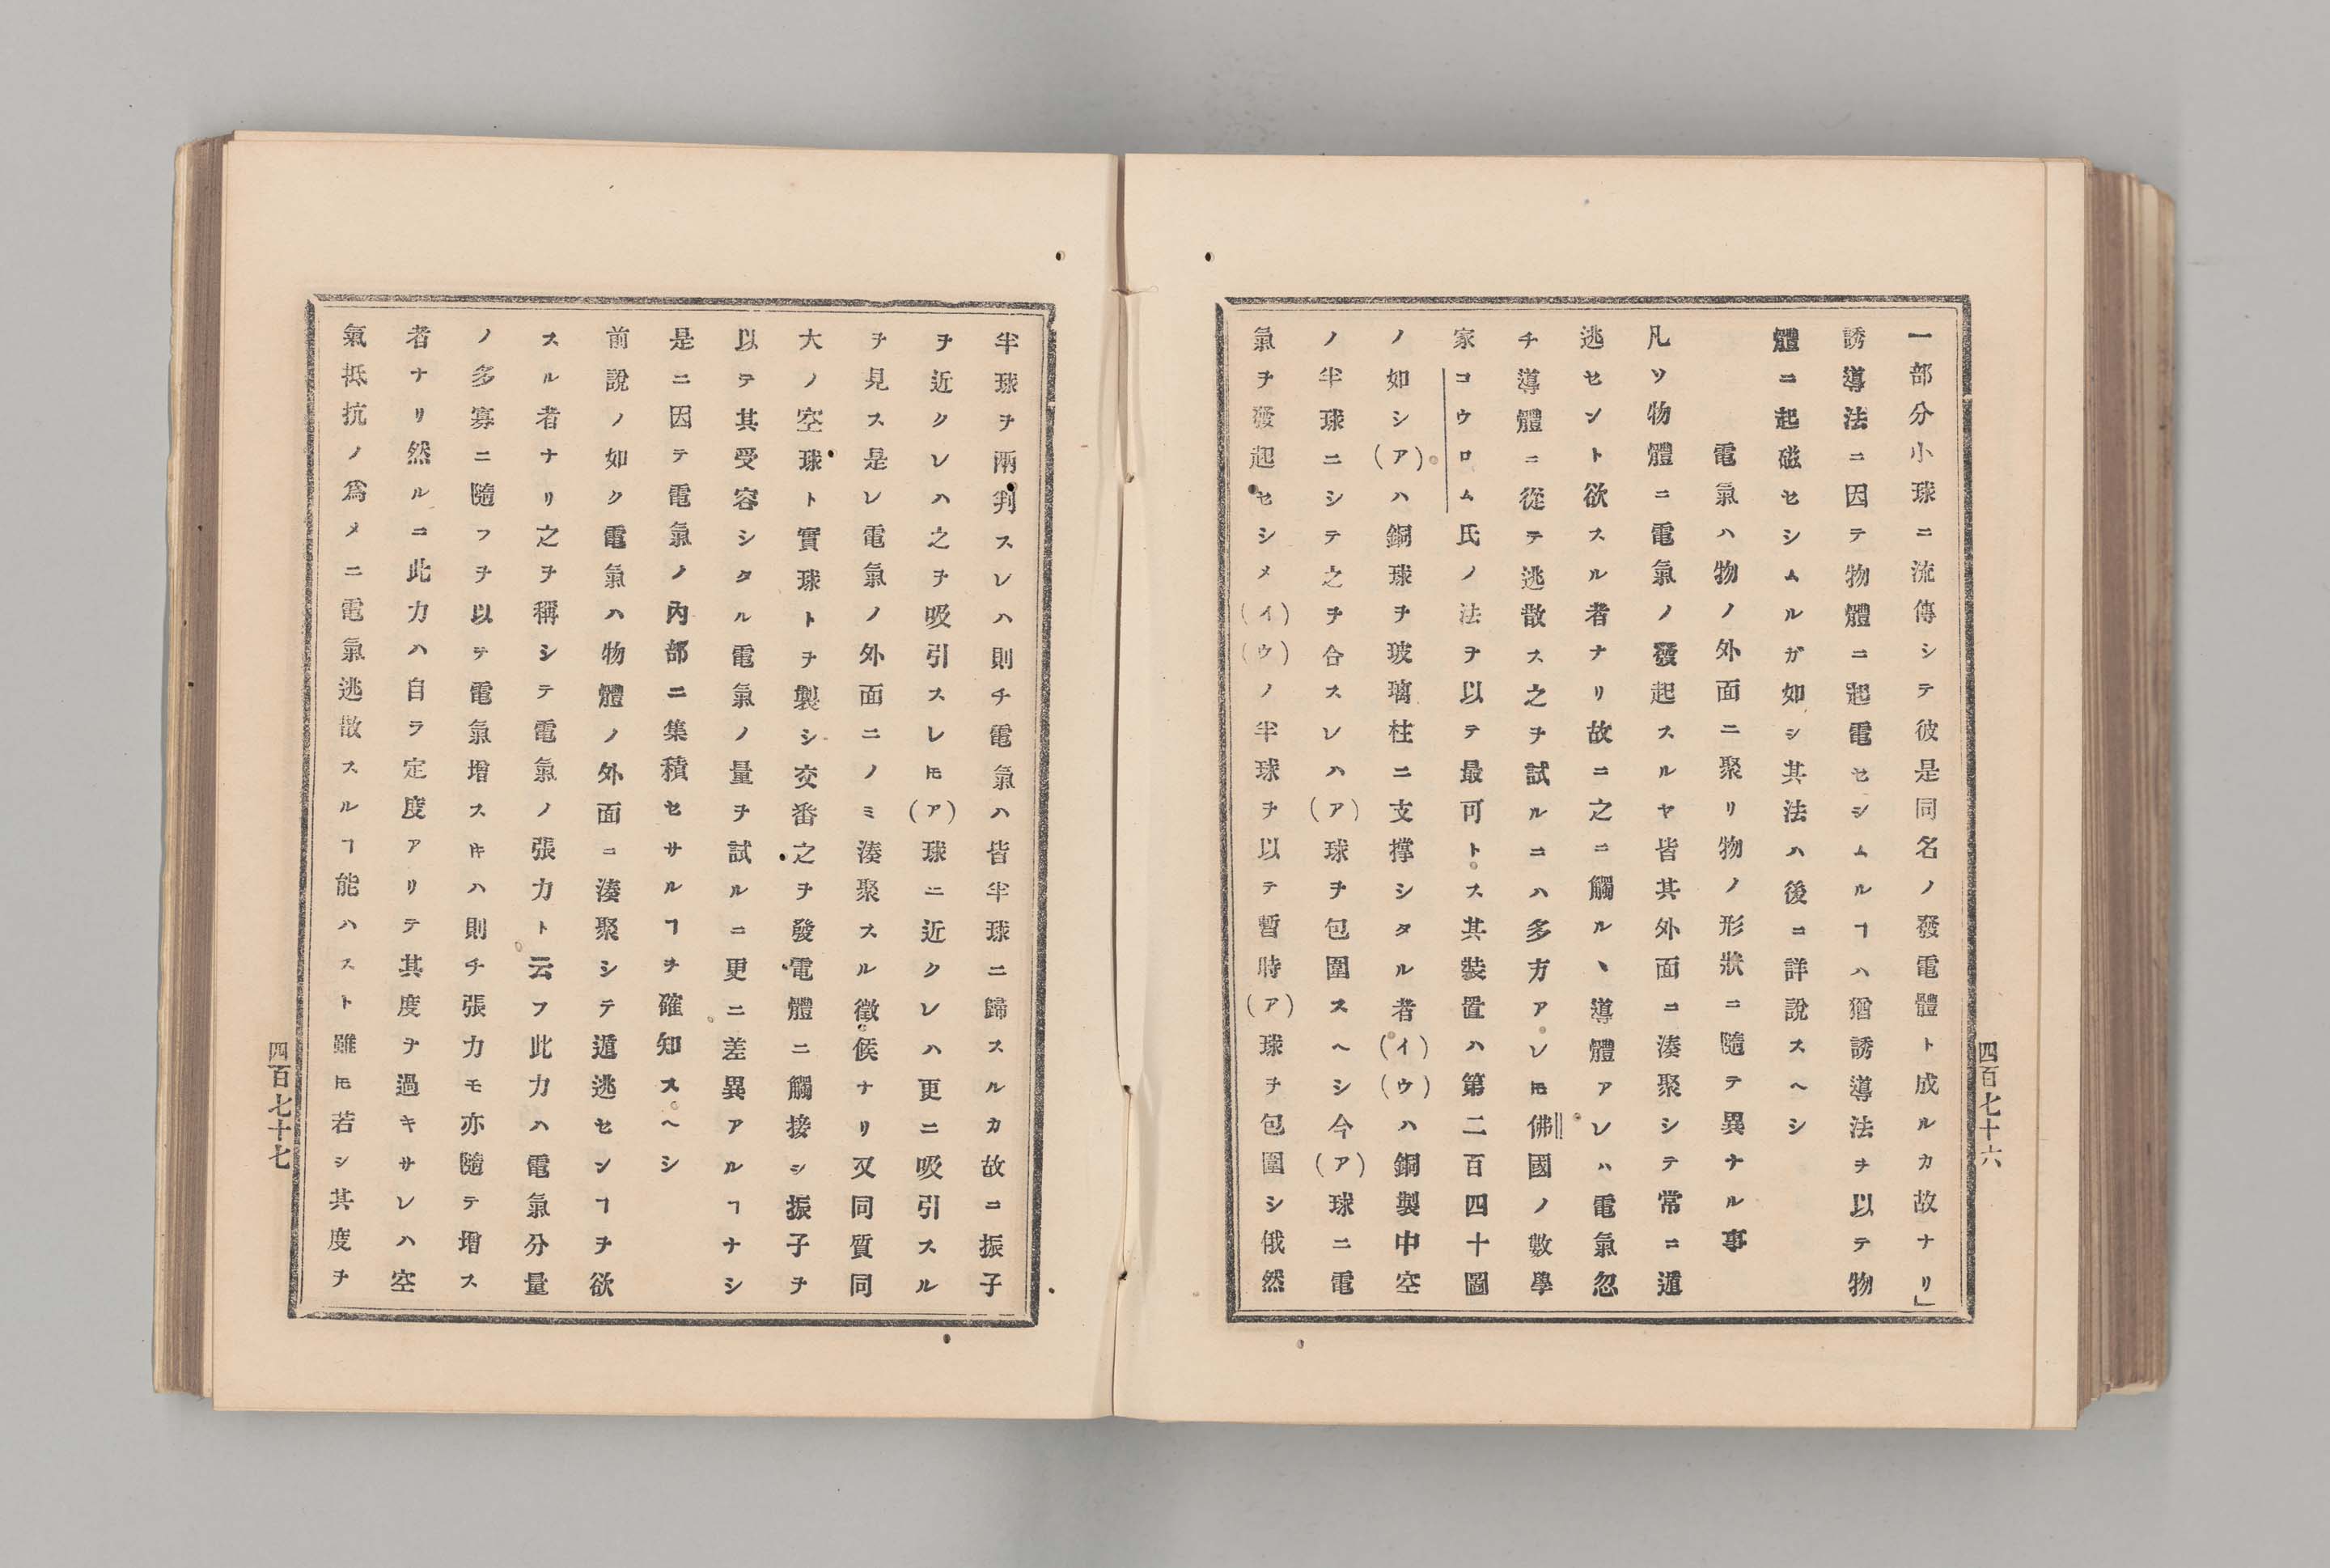 一部分小球ニ流傳シテ彼是同名ノ發電體ト成ルカ故ナリ」
誘導法ニ因テ物體ニ起電セシムルヿハ猶誘導法ヲ以テ物
體ニ起磁セシムルガ如シ其法ハ後ニ詳說スヘシ
電氣ハ物ノ外面ニ聚リ物ノ形狀ニ隨テ異ナル事
凡ソ物體ニ電氣ノ發起スルヤ皆其外面ニ湊聚シテ常ニ遁
逃セント欲スル者ナリ故ニ之ニ觸ルヽ導體アレハ電氣忽
チ導體ニ從テ逃散ス之ヲ試ルニハ多方アレ𪜈佛國ノ數學
家コウロム氏ノ法ヲ以テ最可トス其裝置ハ第二百四十圖
ノ如シ(ア)ハ銅球ヲ玻璃柱ニ支撑シタル者(イ)(ウ)ハ銅製中空
ノ半球ニシテ之ヲ合スレハ(ア)球ヲ包圍スヘシ今(ア)球ニ電
氣ヲ發起セシメ(イ)(ウ)ノ半球ヲ以テ暫時(ア)球ヲ包圍シ俄然
四百七十六
半球ヲ兩判スレハ則チ電氣ハ皆半球ニ歸スルカ故ニ振子
ヲ近クレハ之ヲ吸引スレ𪜈(ア)球ニ近クレハ更ニ吸引スル
ヲ見ス是レ電氣ノ外面ニノミ湊聚スル徵候ナリ又同質同
大ノ空球ト實球トヲ製シ交番之ヲ發電體ニ觸接シ振子ヲ
以テ其受容シタル電氣ノ量ヲ試ルニ更ニ差異アルヿナシ
是ニ因テ電氣ノ內部ニ集積セサルヿヲ確知スヘシ
前說ノ如ク電氣ハ物體ノ外面ニ湊聚シテ遁逃センヿヲ欲
スル者ナリ之ヲ稱シテ電氣ノ張力ト云フ此力ハ電氣分量
ノ多寡ニ隨フヲ以テ電氣增スキハ則チ張力モ亦隨テ增ス
者ナリ然ルニ此力ハ自ラ定度アリテ其度ヲ過キサレハ空
氣抵抗ノ爲メニ電氣逃散スルヿ能ハスト雖𪜈若シ其度ヲ
四百七十七